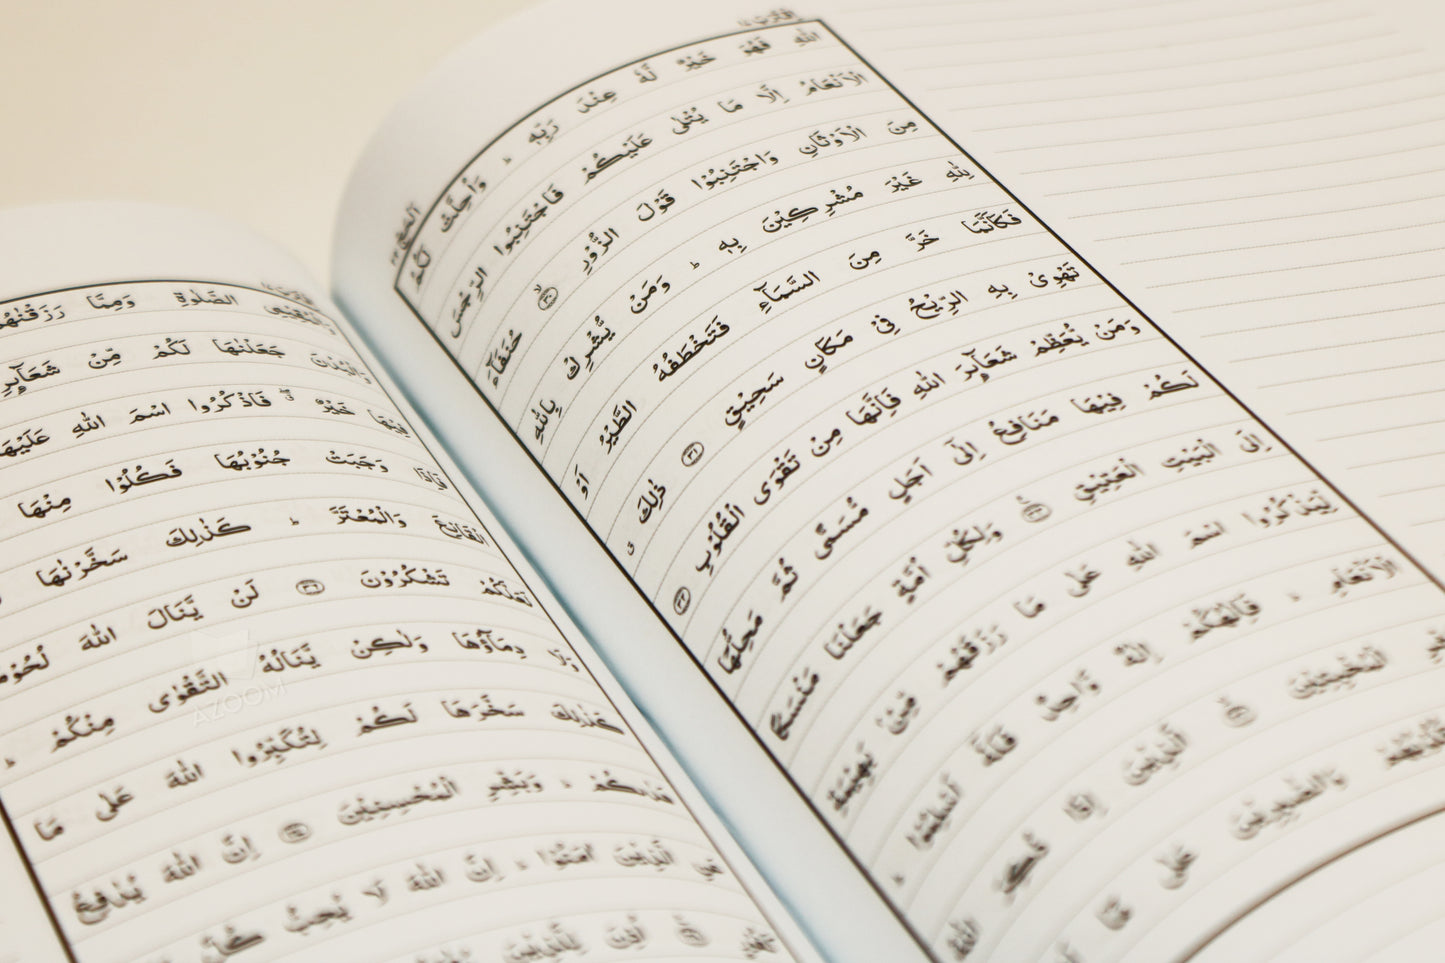 اللّٰهِ فَهُوَ خَيْرٌ لَّهٗ عِنْدَ رَبِّهٖ ؕ وَاُحِلَّتْ لَكُمُ
الْاَنْعَامُ اِلَّا مَا يُتْلٰى عَلَيْكُمْ فَاجْتَنِبُوا الرِّجْسَ
مِنَ الْاَوْثَانِ وَاجْتَنِبُوْا قَوْلَ الزُّوْرِ ۙ‏﴿۳۰﴾ حُنَفَآءَ
لِلّٰهِ غَيْرَ مُشْرِكِيْنَ بِهٖ ؕ وَمَنْ يُّشْرِكْ بِاللّٰهِ
فَكَاَنَّمَا خَرَّ مِنَ السَّمَآءِ فَتَخْطَفُهُ الطَّيْرُ اَوْ
تَهْوِىْ بِهِ الرِّيْحُ فِىْ مَكَانٍ سَحِيْقٍ ﴿۳۱﴾ ذٰلِكَ ۗ
وَمَنْ يُّعَظِّمْ شَعَآٮِٕرَ اللّٰهِ فَاِنَّهَا مِنْ تَقْوَى الْقُلُوْبِ ﴿۳۲﴾
لَكُمْ فِيْهَا مَنَافِعُ اِلٰٓى اَجَلٍ مُّسَمًّى ثُمَّ مَحِلُّهَاۤ
اِلَى الْبَيْتِ الْعَتِيْقِ ﴿۳۳﴾ وَلِكُلِّ اُمَّةٍ جَعَلْنَا مَنْسَكًا
لِّيَذْكُرُوا اسْمَ اللّٰهِ عَلٰى مَا رَزَقَهُمْ مِّنْۢ بَهِيْمَةِ
الْاَنْعَامِ ؕ فَاِلٰهُكُمْ اِلٰهٌ وَّاحِدٌ فَلَهٗۤ اَسْلِمُوْا ؕ
الْمُخْبِتِيْنَ ﴿۳۴﴾ الَّذِيْنَ اِذَا ذُكِرَ اللّٰهُ
قُلُوْبُهُمْ وَالصّٰبِرِيْنَ عَلٰى مَاۤ
الصَّلٰوةِ وَمِمَّا رَزَقْنٰهُمْ
وَالْبُدْنَ جَعَلْنٰهَا لَكُمْ مِّنْ شَعَآٮِٕرِ
فِيْهَا خَيْرٌ ۖ فَاذْكُرُوا اسْمَ اللّٰهِ عَلَيْهَا
فَاِذَا وَجَبَتْ جُنُوْبُهَا فَكُلُوْا مِنْهَا
الْقَانِعَ وَالْمُعْتَرَّ ؕ كَذٰلِكَ سَخَّرْنٰهَا
لَعَلَّكُمْ تَشْكُرُوْنَ ﴿۳۶﴾ لَنْ يَّنَالَ اللّٰهَ لُحُوْمُهَا
وَلَا دِمَآؤُهَا وَلٰكِنْ يَّنَالُهُ التَّقْوٰى مِنْكُمْ ؕ
كَذٰلِكَ سَخَّرَهَا لَكُمْ لِتُكَبِّرُوا اللّٰهَ عَلٰى مَا
هَدٰٮكُمْ ؕ وَبَشِّرِ الْمُحْسِنِيْنَ ﴿۳۷﴾ اِنَّ اللّٰهَ يُدٰفِعُ
عَنِ الَّذِيْنَ اٰمَنُوْا ؕ اِنَّ اللّٰهَ لَا يُحِبُّ كُلَّ
اُذِنَ لِلَّذِيْنَ